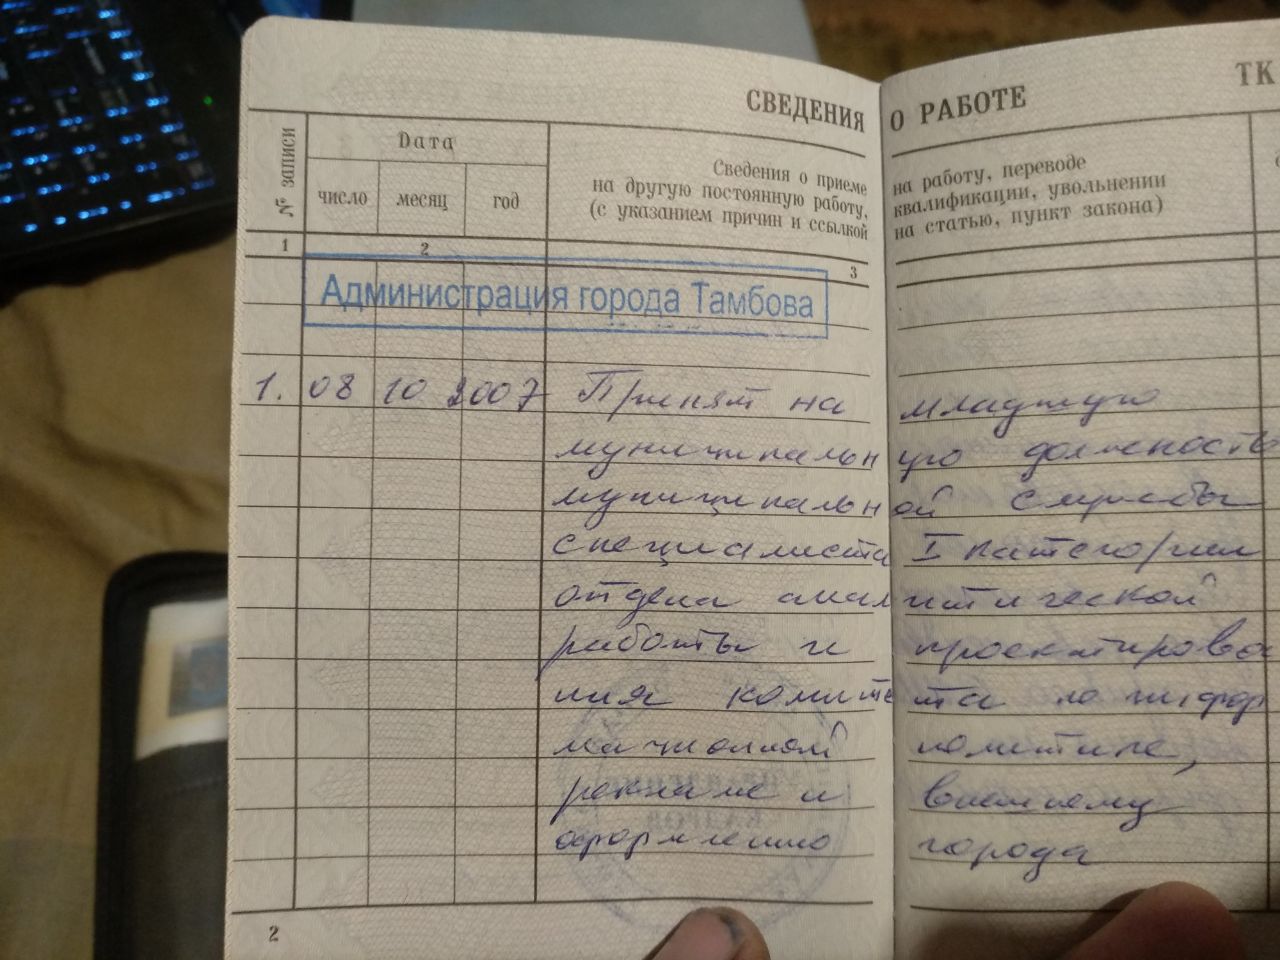 СВЕДЕНИЯ О РАБОТЕ ТК
№ записи
Дата
число месяц год
Сведения о приеме на работу, переводе
на другую постоянную работу, квалификации, увольнении
(с указанием причин и ссылкой на статью, пункт закона)
1 2 3
Администрация города Тамбова
1. 08 10 2007 Принят на младшую
муниципальную должность
муниципальной службы
специалиста I категории
отдела аналитической
работы и проектирова
ния комитета по инфор
мационной политике,
рекламе и внешнему
оформлению города
2